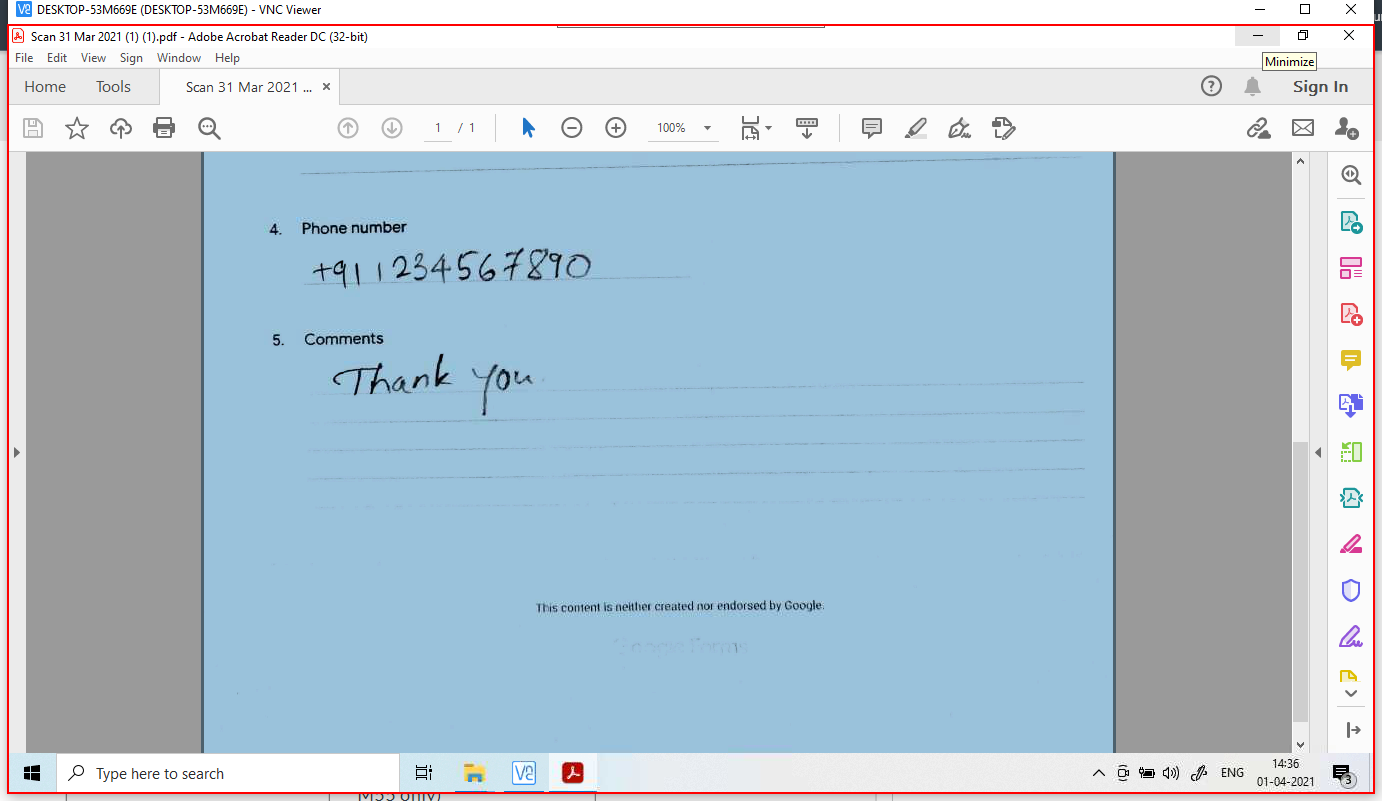 DESKTOP-53M669E (DESKTOP-53M669E) - VNC Viewer
Scan 31 Mar 2021 (1) (1).pdf - Adobe Acrobat Reader DC (32-bit)
File Edit View Sign Window Help
Minimize
Home Tools Scan 31 Mar 2021 ... × Sign In
1 / 1 100%
4. Phone number
+91 1234567890
5. Comments
Thank you
This content is neither created nor endorsed by Google.
Google Forms
Type here to search
ENG
14:36
01-04-2021
3